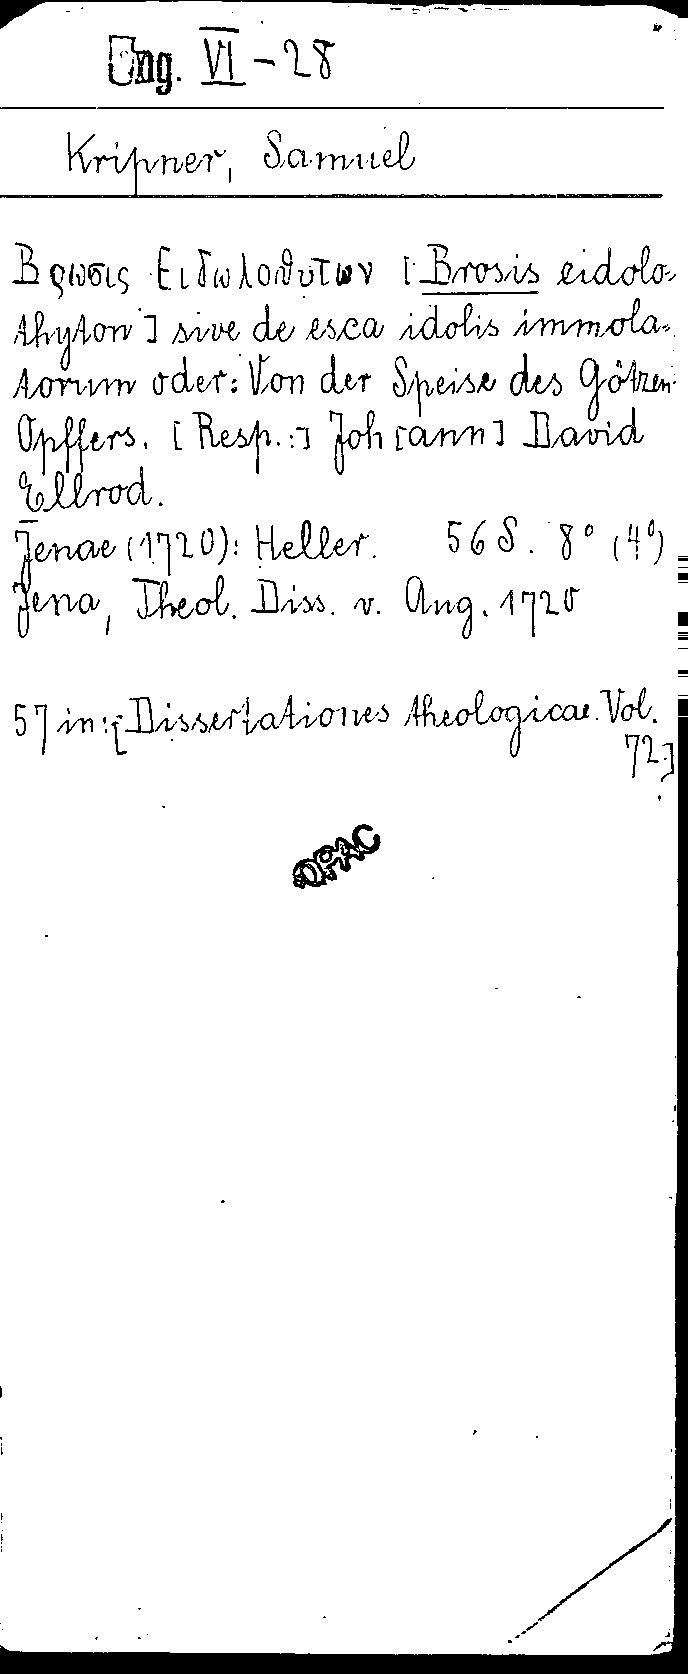 Ung. VI - 28
Kripner, Samuel
Βρωσις Ειδωλοθυτων [Brosis eidolo-
thyton] sive de esca idolis immola-
torum oder: Von der Speise des Götzen-
Opffers. [Resp.:] Joh[ann] David
Ellrod.
Jenae (1720): Heller. 56 S. 8° (4°)
Jena, Theol. Diss. v. Aug. 1720
57 in: [Dissertationes theologicae. Vol.
72.]
OPAC